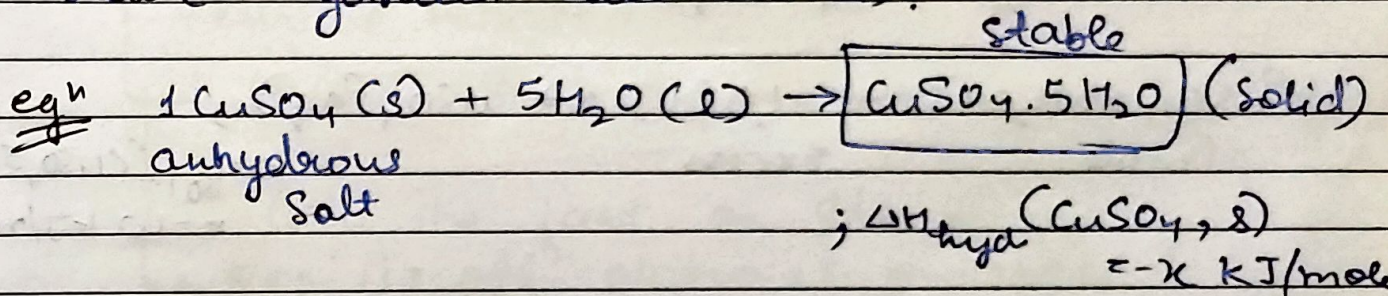 stable
eqⁿ 1 CuSO₄ (s) + 5H₂O (l) → CuSO₄.5H₂O (Solid)
anhydrous
Salt
; ΔH hyd (CuSO₄, s)
= -x kJ/mole